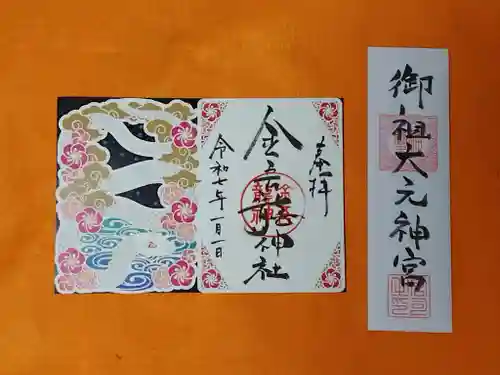 奉拝
金吾龍神社
令和七年一月一日
御祖大元神宮